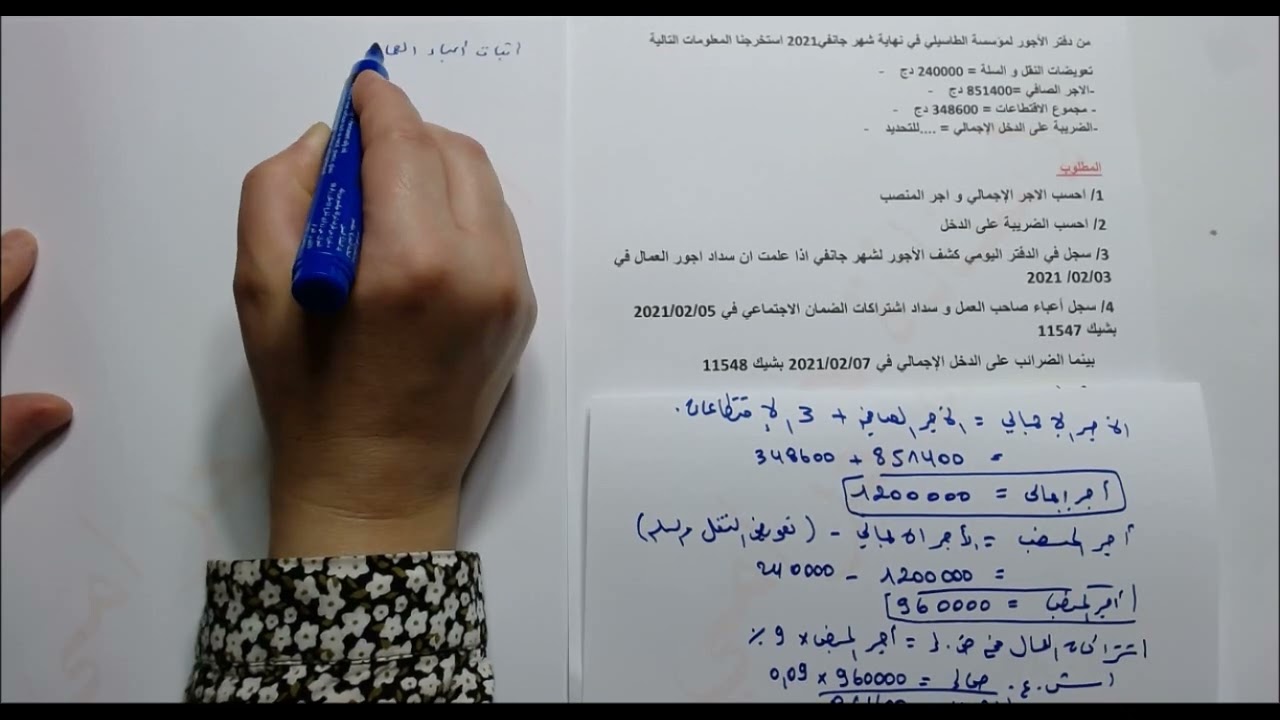 اثبات أعباء العما
من دفتر الأجور لمؤسسة الطاسيلي في نهاية شهر جانفي2021 استخرجنا المعلومات التالية
تعويضات النقل و السلة = 240000 دج -
-الاجر الصافي =851400 دج -
- مجموع الاقتطاعات = 348600 دج -
-الضريبة على الدخل الإجمالي = ....للتحديد -
المطلوب
1/ احسب الاجر الإجمالي و اجر المنصب
2/ احسب الضريبة على الدخل
3/ سجل في الدفتر اليومي كشف الأجور لشهر جانفي اذا علمت ان سداد اجور العمال في
02/03/ 2021
4/ سجل أعباء صاحب العمل و سداد اشتراكات الضمان الاجتماعي في 2021/02/05
بشيك 11547
بينما الضرائب على الدخل الإجمالي في 2021/02/07 بشيك 11548
الأجر الإجمالي = الأجر الصافي + الإقتطاعات.
= 851400 + 348600
أجر إجمالي = 1200000
أجر المنصب = الأجر الإجمالي - (تعويض النقل و السلة)
= 1200000 - 240000
أجر المنصب = 960000
اشتراكات العمال في ض.إ = أجر المنصب × 9 %
إش.ع. = 960000 × 0,09